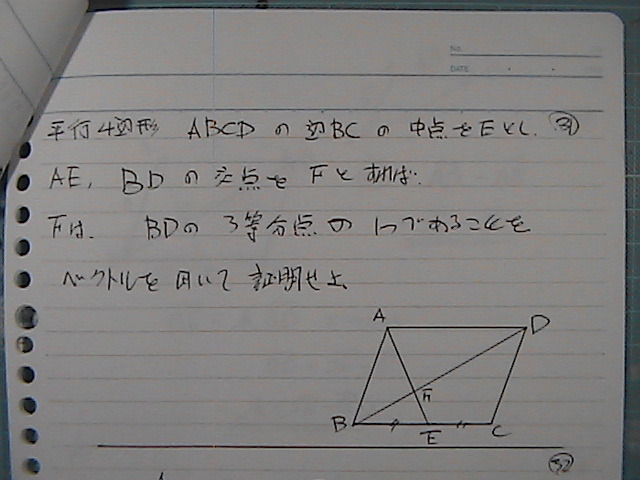 No.
DATE
平行4辺形 ABCD の 辺BC の 中点を Eとし、 31
AE, BD の 交点を Fと すれば、
Fは、 BDの 3等分点の 1つであることを
ベクトルを 用いて 証明せよ、
A
D
F
B
E
C
32